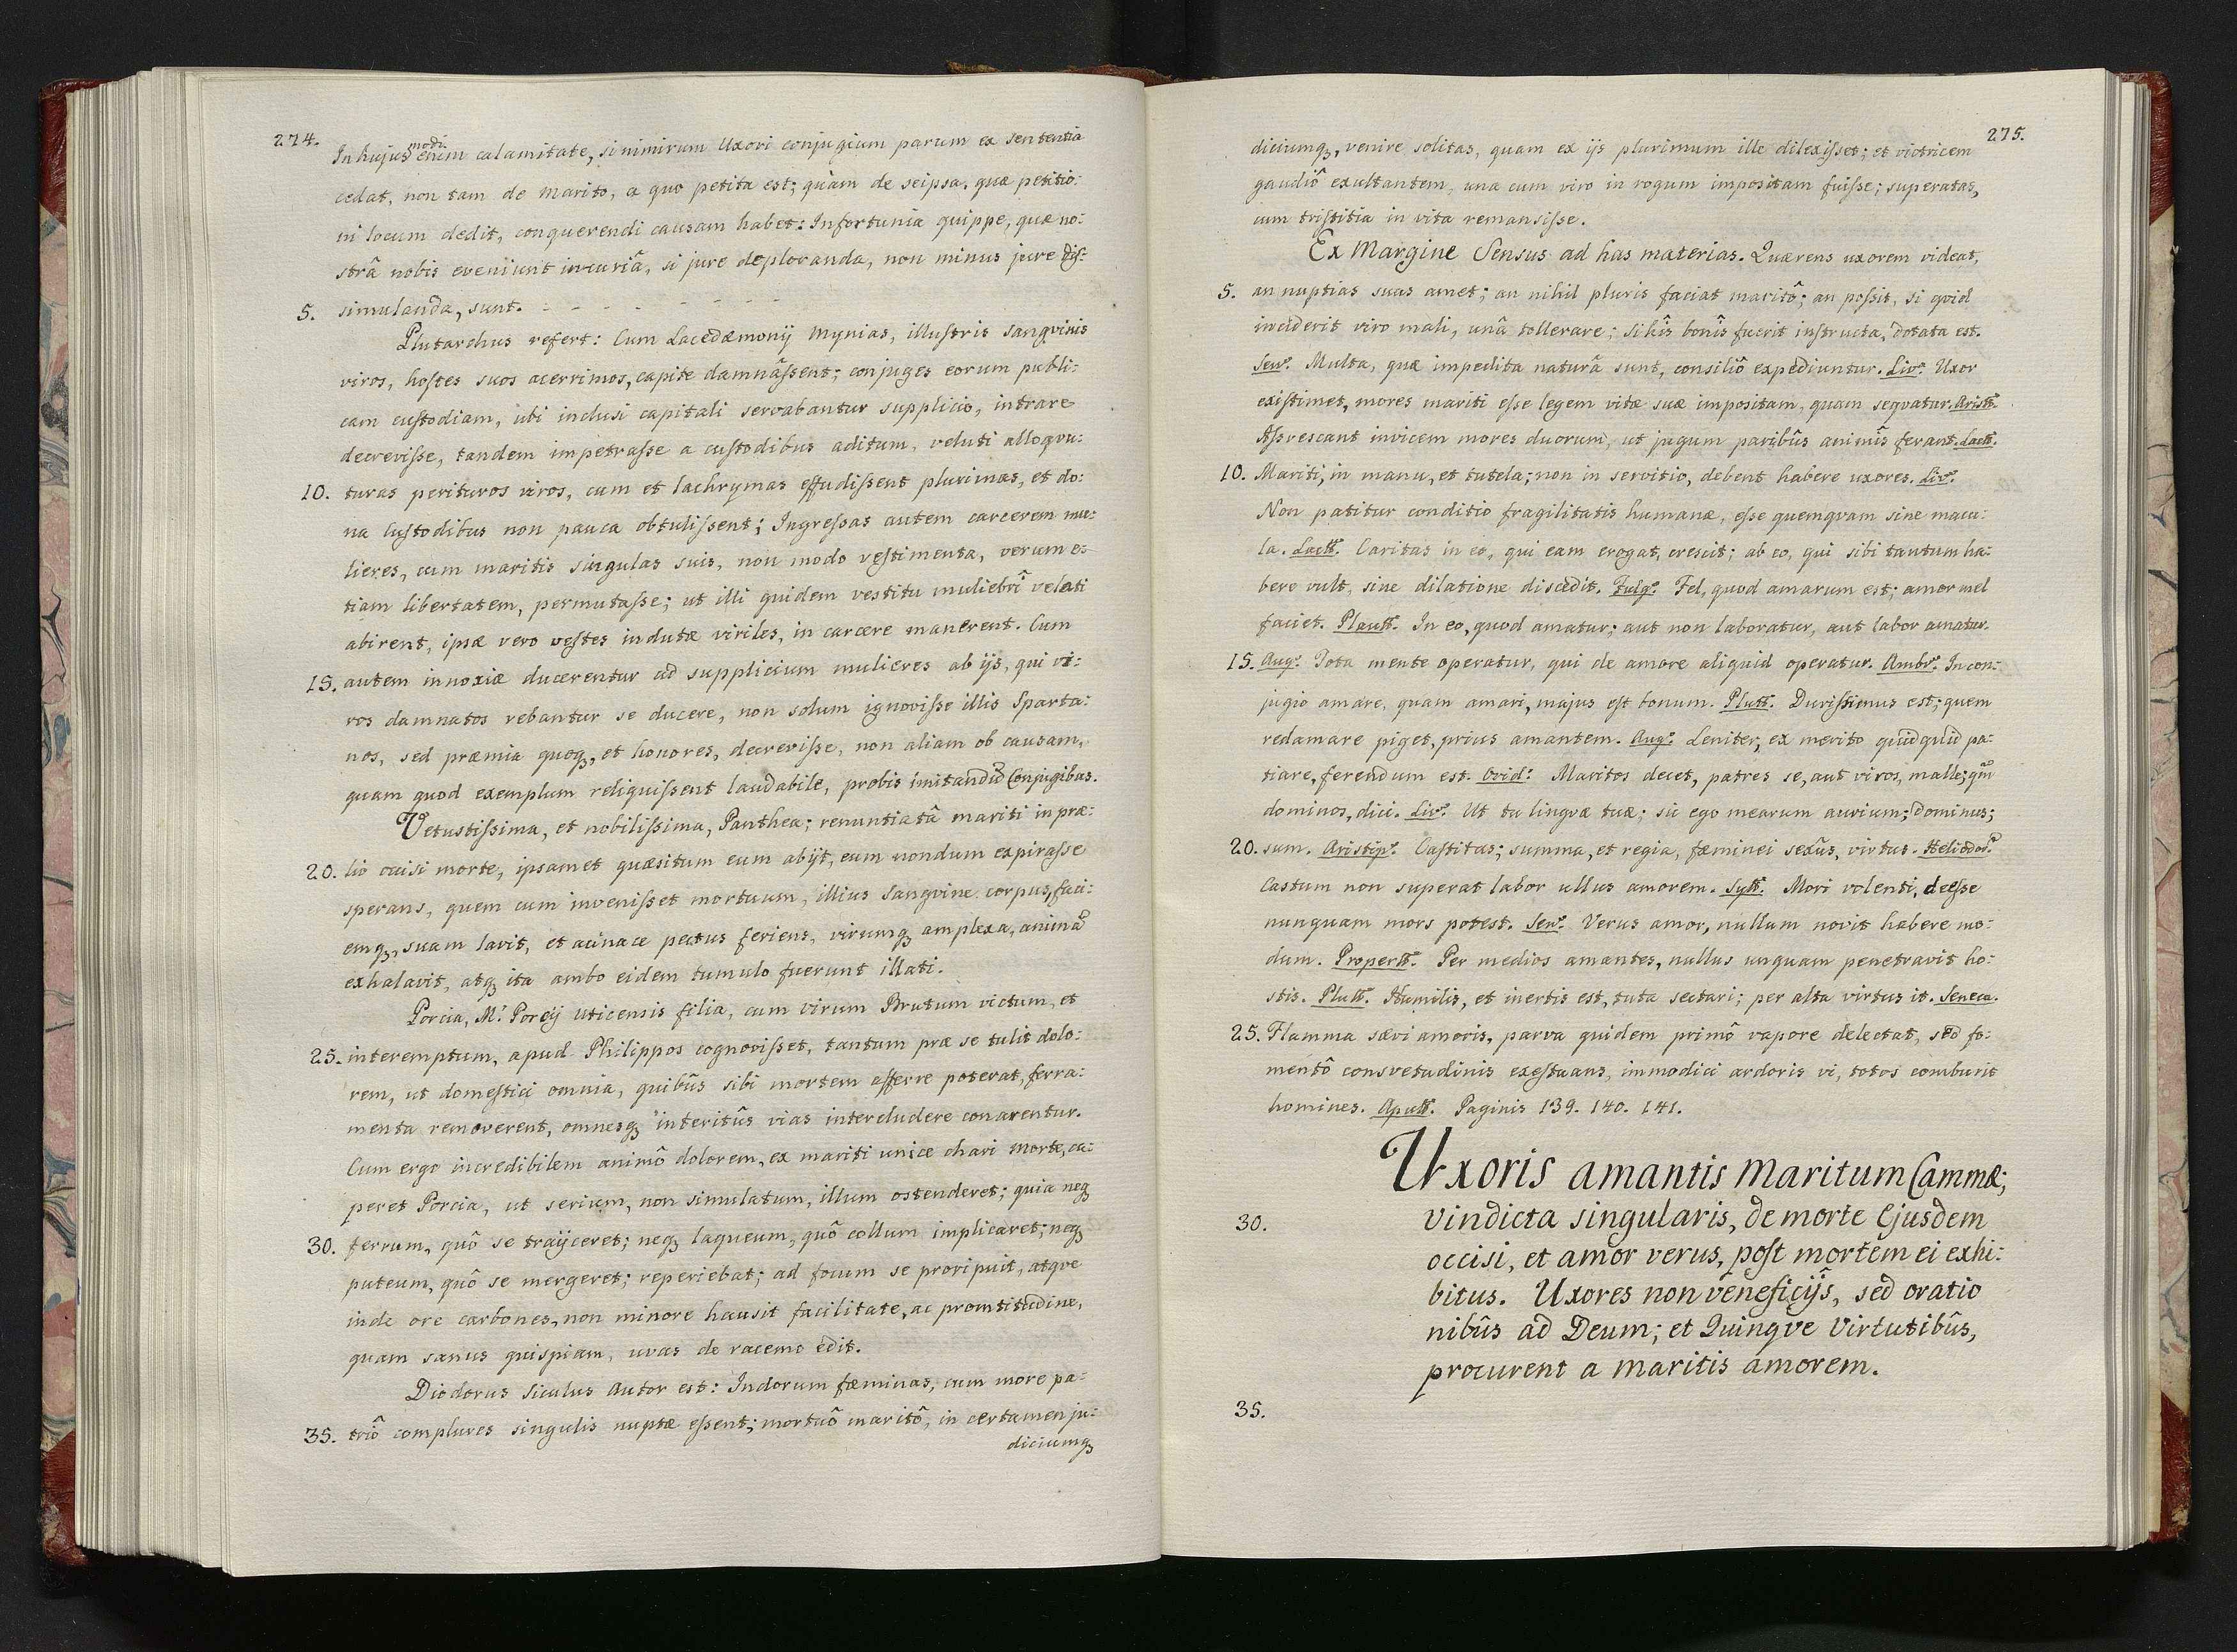 274.
In hujusmodi enim calamitate, si nimirum Uxori conjugium parum ex sententia
cedat, non tam de marito, a quo petita est; quàm de seipsa, quæ petitio:
ni locum dedit, conquerendi causam habet: Infortunia quippe, quæ no:
strâ nobis eveniunt incuriâ, si jure deploranda, non minus jure dis:
5. simulanda, sunt. - - - - - - -
Plutarchus refert: Cum Lacedæmonij Mynias, illustris sangvinis
viros, hostes suos acerrimos, capite damnâssent; conjuges eorum publi:
cam custodiam, ubi inclusi capitali servabantur supplicio, intrare
decrevisse, tandem impetrasse a custodibus aditum, veluti alloqvu:
10. turas perituros viros, cum et lachrymas effudissent plurimas, et do:
na custodibus non pauca obtulissent; Ingressas autem carcerem mu:
lieres, cum maritis singulas suis, non modo vestimenta, verum e:
tiam libertatem, permutasse; ut illi quidem vestitu muliebrî velati
abirent, ipsæ vero vestes indutæ viriles, in carcere manerent. Cum
15. autem innoxiæ ducerentur ad supplicium mulieres ab ijs, qui vi:
ros damnatos rebantur se ducere, non solum ignovisse illis Sparta:
nos, sed præmia quoqꝫ, et honores, decrevisse, non aliam ob causam,
quam quod exemplum reliquissent laudabile, probis imitandũ Conjugibus.
Vetustissima, et nobilissima, Panthea; renuntiatâ mariti in præ:
20. lio occisi morte, ipsamet quæsitum eum abijt, eum nondum expirasse
sperans, quem cum invenisset mortuum, illius sangvine corpus, faci:
emqꝫ, suam lavit, et acinace pectus feriens, virumqꝫ amplexa, animã
exhalavit, atqꝫ ita ambo eidem tumulo fuerunt illati.
Porcia, M: Porcij Uticensis filia, cum virum Brutum victum, et
25. interemptum, apud Philippos cognovisset, tantum præ se tulit dolo:
rem, ut domestici omnia, quibûs sibi mortem afferre poterat, ferra:
menta removerent, omnesqꝫ interitûs vias intercludere conarentur.
Cum ergo incredibilem animô dolorem, ex mariti unice chari morte, ca:
peret Porcia, ut serium, non simulatum, illum ostenderet; quia neqꝫ
30. ferrum, quô se trayceret; neqꝫ laqueum, quô collum implicaret; neqꝫ
puteum, quô se mergeret; reperiebat; ad focum se proripuit, atqve
inde ore carbones, non minore hausit facilitate, ac promtitudine,
quam sanus quispiam, uvas de racemo edit.
Diodorus Siculus Autor est: Indorum fæminas, cum more pa:
35. triô complures singulis nuptæ essent; mortuô maritô, in certamen ju:
diciumqꝫ
275.
diciumqꝫ, venire solitas, quam ex ijs plurimum ille dilexisset; et victricem
gaudiô exultantem, una cum viro in rogum impositam fuisse; superatas,
cum tristitia in vita remansisse.
Ex Margine Sensus ad has materias. Quærens uxorem videat,
5. an nuptias suas amet; an nihil pluris faciat maritô; an possit, si qvid
inciderit viro mali, unâ tollerare; si hîs bonîs fuerit instructa, dotata est.
Sen: Multa, quæ impedita naturâ sunt, consiliô expediuntur. Liv: Uxor
existimet, mores mariti esse legem vitæ suæ impositam, quam seqvatur. Aristt:
Assvescant invicem mores duorum, ut jugum paribûs animîs ferant. Lactt:
10. Mariti, in manu, et tutela; non in servitio, debent habere uxores. Liv:
Non patitur conditio fragilitatis humanæ, esse quemqvam sine macu:
la. Lactt: Caritas in eo, qui eam erogat, crescit; ab eo, qui sibi tantum ha:
bere vult, sine dilatione discedit. Fulg: Fel, quod amarum est; amor mel
faciet. Plautt: In eo, quod amatur; aut non laboratur, aut labor amatur.
15. Aug: Tota mente operatur, qui de amore aliquid operatur. Ambr: In con:
jugio amare, quam amari, majus est bonum. Plutt: Durissimus est; quem
redamare piget, prius amantem. Aug: Leniter, ex merito quidquid pa:
tiare, ferendum est. Ovid: Maritos decet, patres se, aut viros, malle; qũm
dominos, dici. Liv: Ut tu lingvæ tuæ; sic ego mearum aurium; Dominus;
20. sum. Aristip: Castitas; summa, et regia, fæminei sexûs, virtus. Heliodor:
Castum non superat labor ullus amorem. Sytt: Mori volenti, deesse
nunquam mors potest. Sen: Verus amor, nullum novit habere mo:
dum. Propertt: Per medios amantes, nullus unquam penetravit ho:
stis. Plutt: Humilis, et inertis est, tuta sectari; per alta virtus it. Seneca.
25. Flamma sævi amoris, parva quidem primô vapore delectat, sed fo:
mentô consvetudinis exæstuans, immodici ardoris vi, totos comburit
homines. Apull: Paginis 139. 140. 141.
Uxoris amantis Maritum Cammæ;
30. vindicta singularis, de morte Ejusdem
occisi, et amor verus, post mortem ei exhi:
bitus. Uxores non veneficijs, sed oratio
nibûs ad Deum; et Quinqve Virtutibûs,
procurent a Maritis amorem.
35.